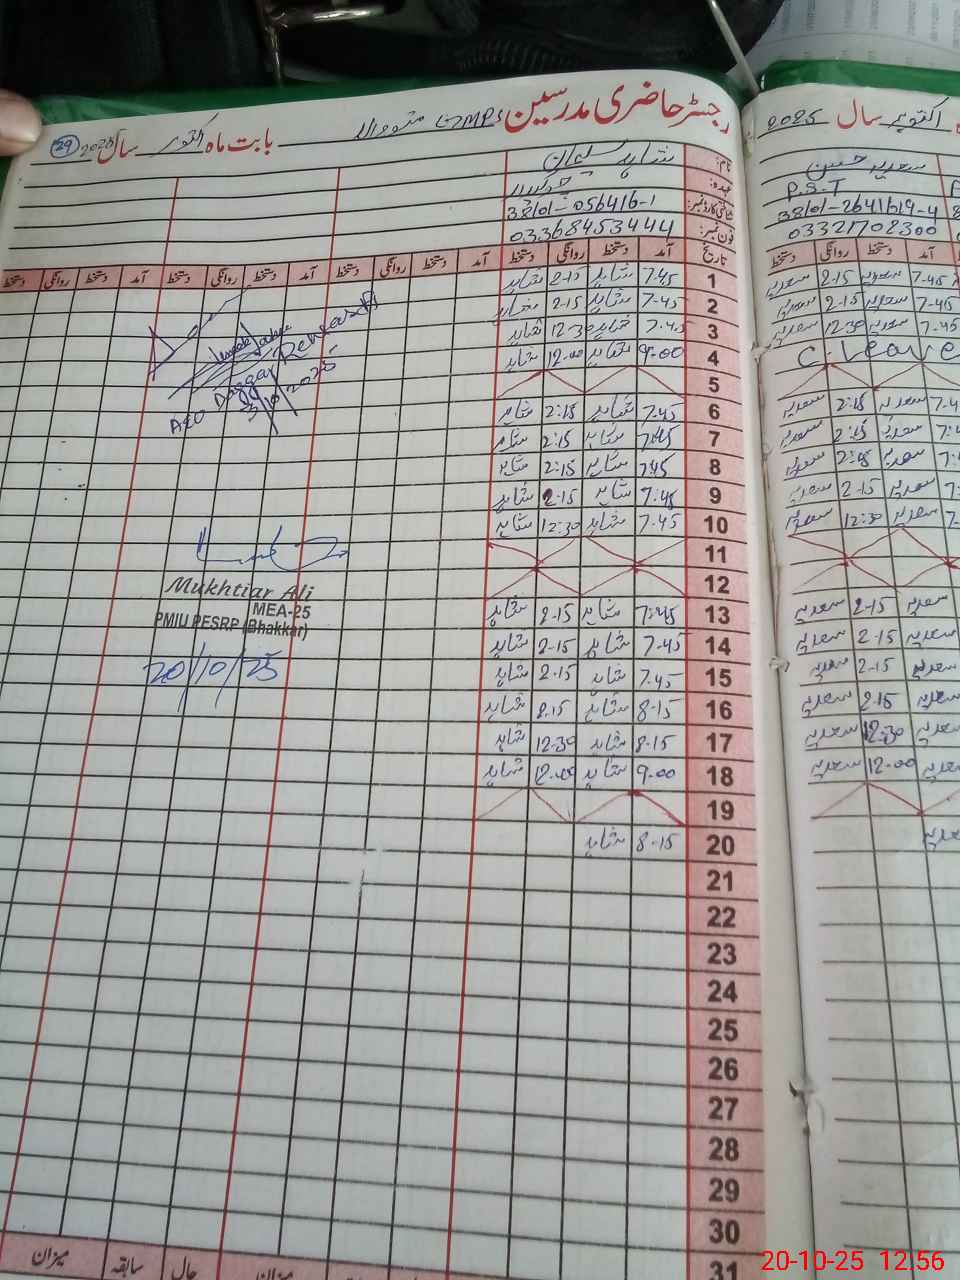 رجسٹر حاضری مدرسین GMPS بابت ماہ اکتوبر سال 2025
29
نام: شاہد سلیمان
عہدہ: چوکیدار
شناختی کارڈ نمبر: 38101-056416-1
فون نمبر: 03368453444
تاریخ آمد دستخط روانگی دستخط آمد دستخط روانگی دستخط آمد دستخط روانگی دستخط آمد دستخط روانگی دستخط
1 7.45 شاہد 2-15 شاہد
2 7-45 شاہد 2.15 شاہد
3 7.45 شاہد 12.30 شاہد
4 9.00 شاہد 12.00 شاہد
5
6 7.45 شاہد 2:15 شاہد
7 7:45 شاہد 2:15 شاہد
8 7:45 شاہد 2:15 شاہد
9 7:45 شاہد 2-15 شاہد
10 7.45 شاہد 12:30 شاہد
11
12
13 7:45 شاہد 2-15 شاہد
14 7-45 شاہد 2-15 شاہد
15 7.45 شاہد 2.15 شاہد
16 8-15 شاہد 2.15 شاہد
17 8-15 شاہد 12-30 شاہد
18 9-00 شاہد 12.00 شاہد
19
20 8-15 شاہد
21
22
23
24
25
26
27
28
29
30
31
AEO
3/10/2025
Mukhtiar Ali
MEA-25
PMIU PESRP (Bhakkar)
20/10/25
میزان سابقہ حال میزان
اکتوبر سال 2025
سعدیہ حسین
P.S.T
38101-2641619-4
03321702300
آمد دستخط روانگی دستخط
7-45 سعدیہ 2-15 سعدیہ
7-45 سعدیہ 2-15 سعدیہ
7-45 سعدیہ 12:30 سعدیہ
C. Leave
سعدیہ 2:15 سعدیہ
سعدیہ 2:15 سعدیہ
سعدیہ 2:15 سعدیہ
سعدیہ 2-15 سعدیہ
سعدیہ 12:30 سعدیہ
سعدیہ 2-15 سعدیہ
سعدیہ 2-15 سعدیہ
سعدیہ 2-15 سعدیہ
سعدیہ 2.15 سعدیہ
سعدیہ 12-30 سعدیہ
سعدیہ 12-00 سعدیہ
سعدیہ
20-10-25 12:56